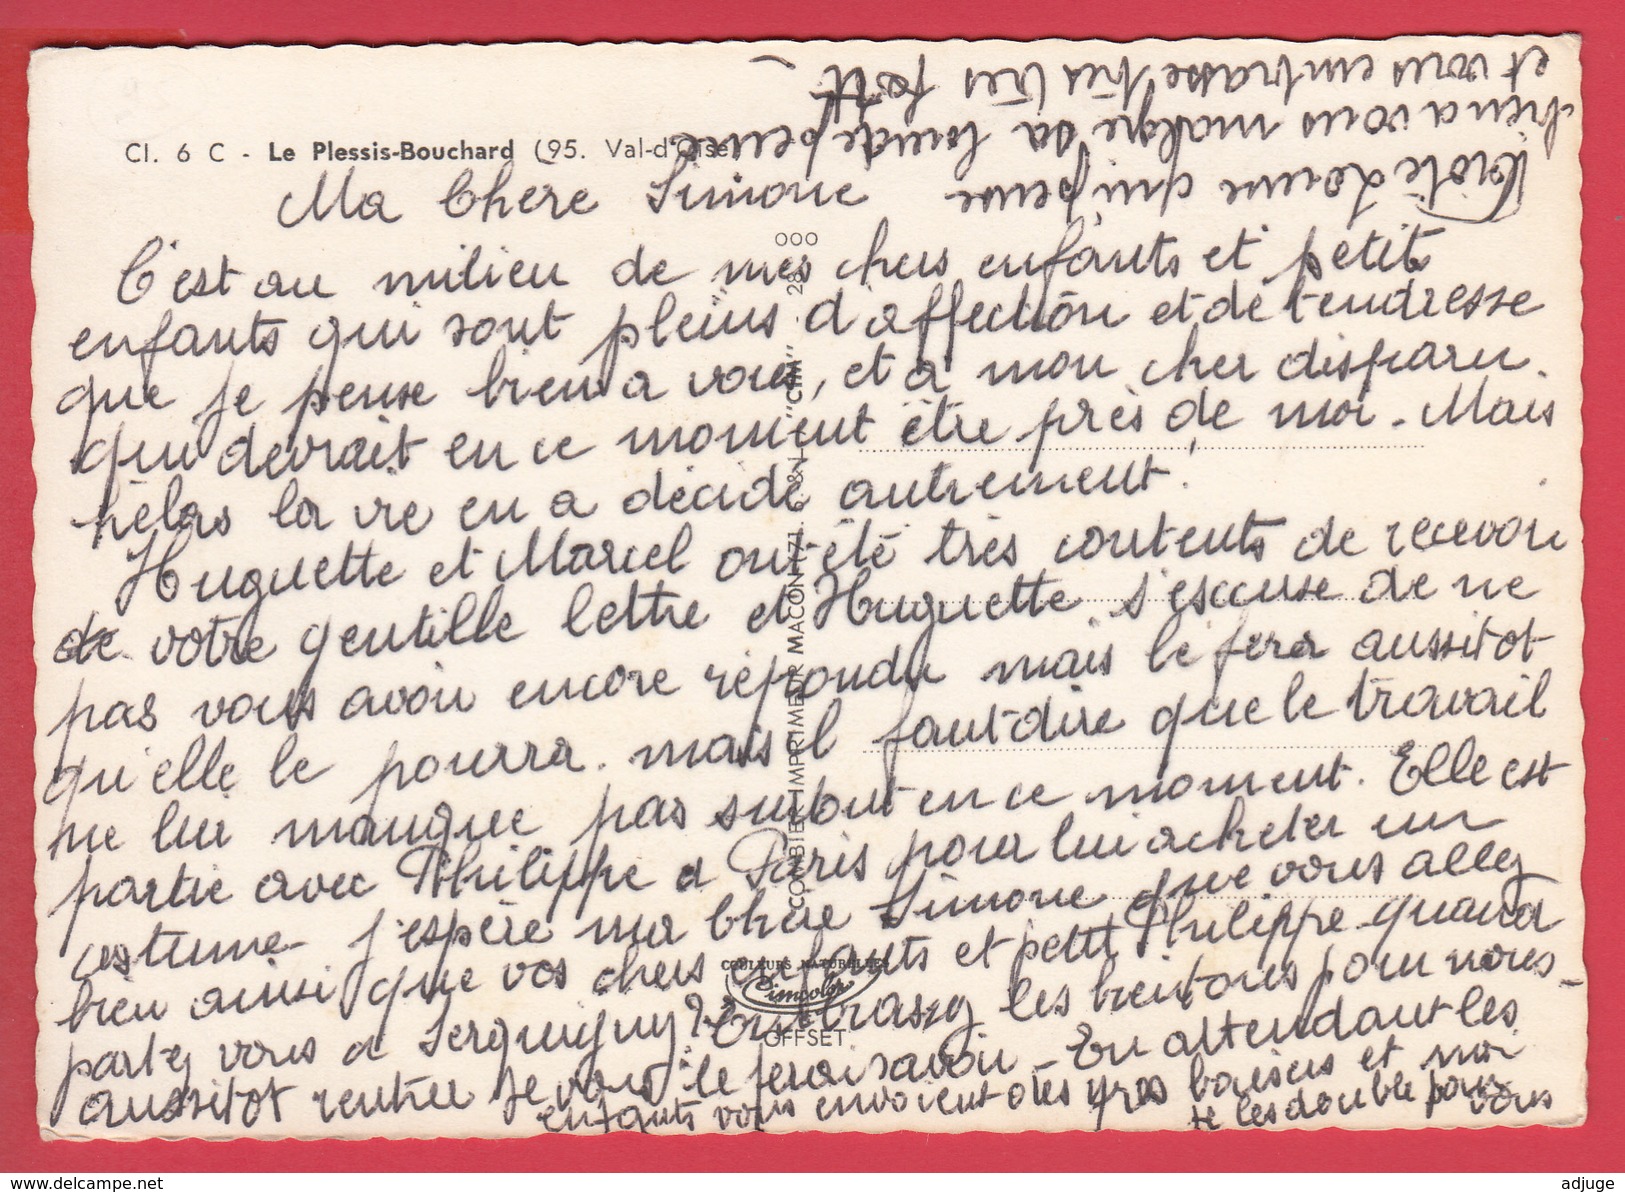 Cl. 6 C - Le Plessis-Bouchard (95. Val-d'Oise
Ma Chere Simone
C'est au milieu de mes chers enfants et petits
enfants qui sont pleins d'affection et de tendresse
que je pense bien a vous, et à mon cher disparu.
qui devrait en ce moment être près de moi. Mais
hélas la vie en a décidé autrement.
Huguette et Marcel ont été très contents de recevoir
de votre gentille lettre et Huguette s'excuse de ne
pas vous avoir encore répondu mais le fera aussitot
qu'elle le pourra. mais il faut dire que le travail
ne lui manque pas surtout en ce moment. Elle est
partie avec Philippe a Paris pour lui acheter un
costume. J'espère ma Chère Simone que vous allez
bien ainsi que vos chers enfants et petit Philippe quand
partez vous a Serquigny? Embrassez les bretons pour nous -
aussitot rentrée je vous le ferai savoir - En attendant les
enfants vous envoient des gros baisers et moi
je les double pour
vous
Cécile qui pense
bien a vous malgré sa peine
et vous embrasse très très fort.
000
COMBIER IMPRIMEUR MACON (71. S.&L. "CIM"
COULEURS NATURELLES
Cimcolor
OFFSET
www.delcampe.net
adjuge